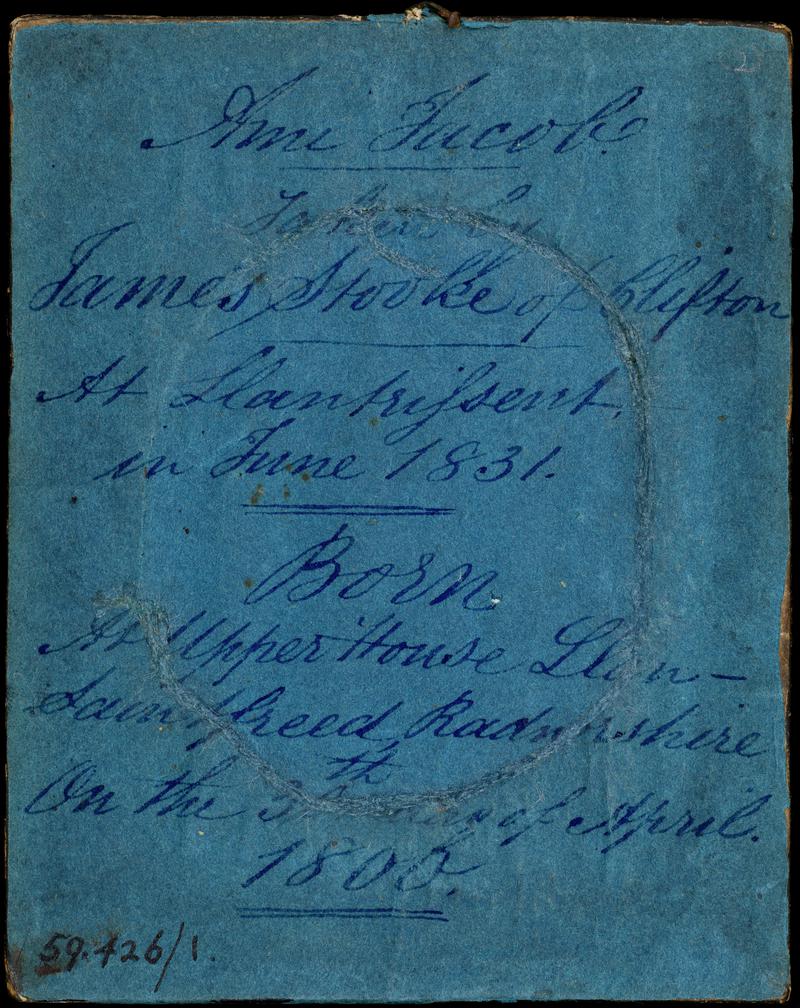 Ami Jacob.
Taken by
James Stooke of Clifton
At Llantrissent.
in June 1831.
Born
At Upper House Llan-
Saintfreed Radnorshire
On the of April.
1806.
59.426/1.